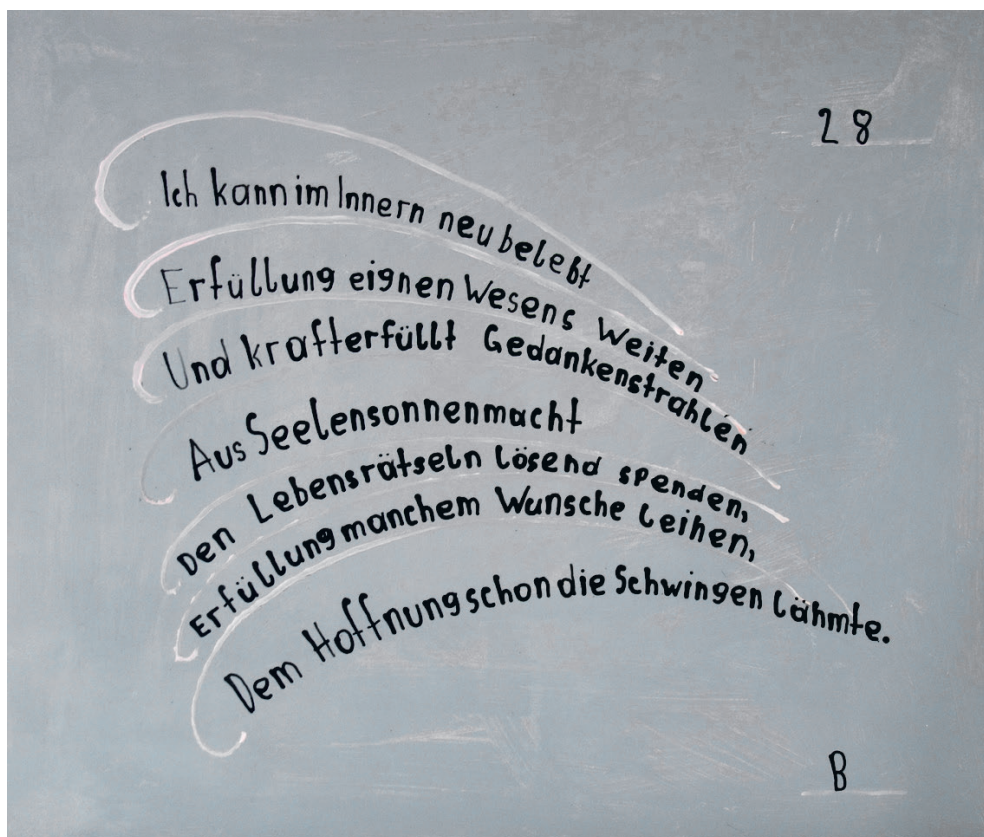 28
Ich kann im Innern neu belebt
Erfüllung eignen Wesens Weiten
Und krafterfüllt Gedankenstrahlen
Aus Seelensonnenmacht
Den Lebensrätseln lösend spenden,
Erfüllung manchem Wunsche leihen,
Dem Hoffnung schon die Schwingen lähmte.
B